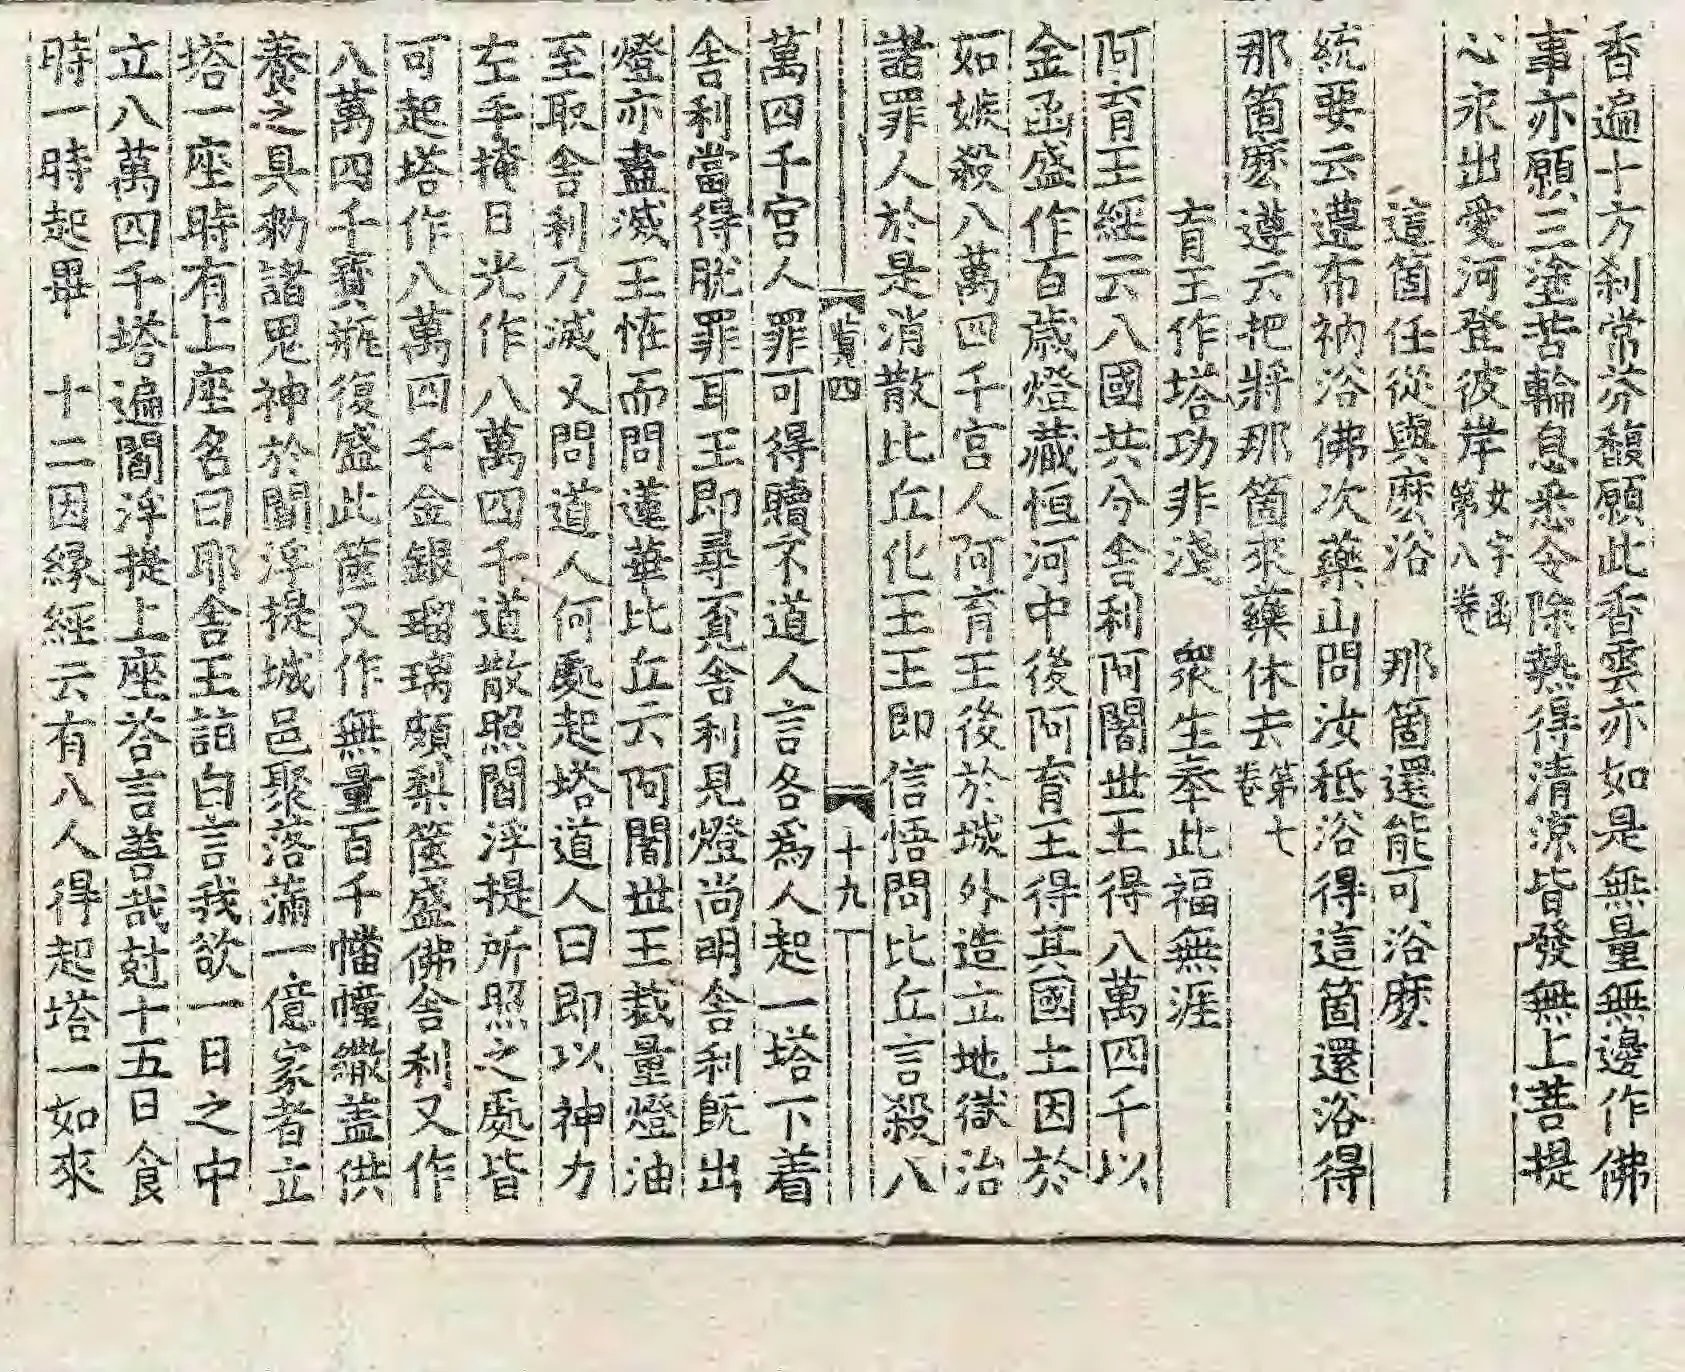 香遍十方刹常芬馥願此香雲亦如是無量無邊作佛
事亦願三塗苦輪息悉令除熱得清凉皆發無上菩提
心永出愛河登彼岸女字函第八卷
這箇任從與麽浴　那箇還能可浴麽
統要云遵布衲浴佛次藥山問汝秪浴得這箇還浴得
那箇麽遵云把將那箇來藥休去第七卷
育王作塔功非淺　衆生奉此福無涯
阿育王經云八國共分舍利阿闍世王得八萬四千以
金函盛作百歳燈藏恒河中後阿育王得其國土因於
如嫉殺八萬四千宮人阿育王後於城外造立地獄治
諸罪人於是消散比丘化王王即信悟問比丘言殺八
黃四　十九
萬四千宮人罪可得贖不道人言各爲人起一塔下着
舍利當得脱罪耳王即尋覓舍利見燈尚明舍利既出
燈亦盡滅王恠而問蓮華比丘云阿闍世王裁量燈油
至取舍利乃滅又問道人何處起塔道人曰即以神力
左手掩日光作八萬四千道散照閻浮提所照之處皆
可起塔作八萬四千金銀瑠璃頗梨篋盛佛舍利又作
八萬四千寶瓶復盛此篋又作無量百千幡幢繖盖供
養之具勑諸鬼神於閻浮提城邑聚落滿一億家者立
塔一座時有上座名曰耶舍王詣白言我欲一日之中
立八萬四千塔遍閻浮提上座荅言善哉尅十五日食
時一時起畢　十二因緣經云有八人得起塔一如來